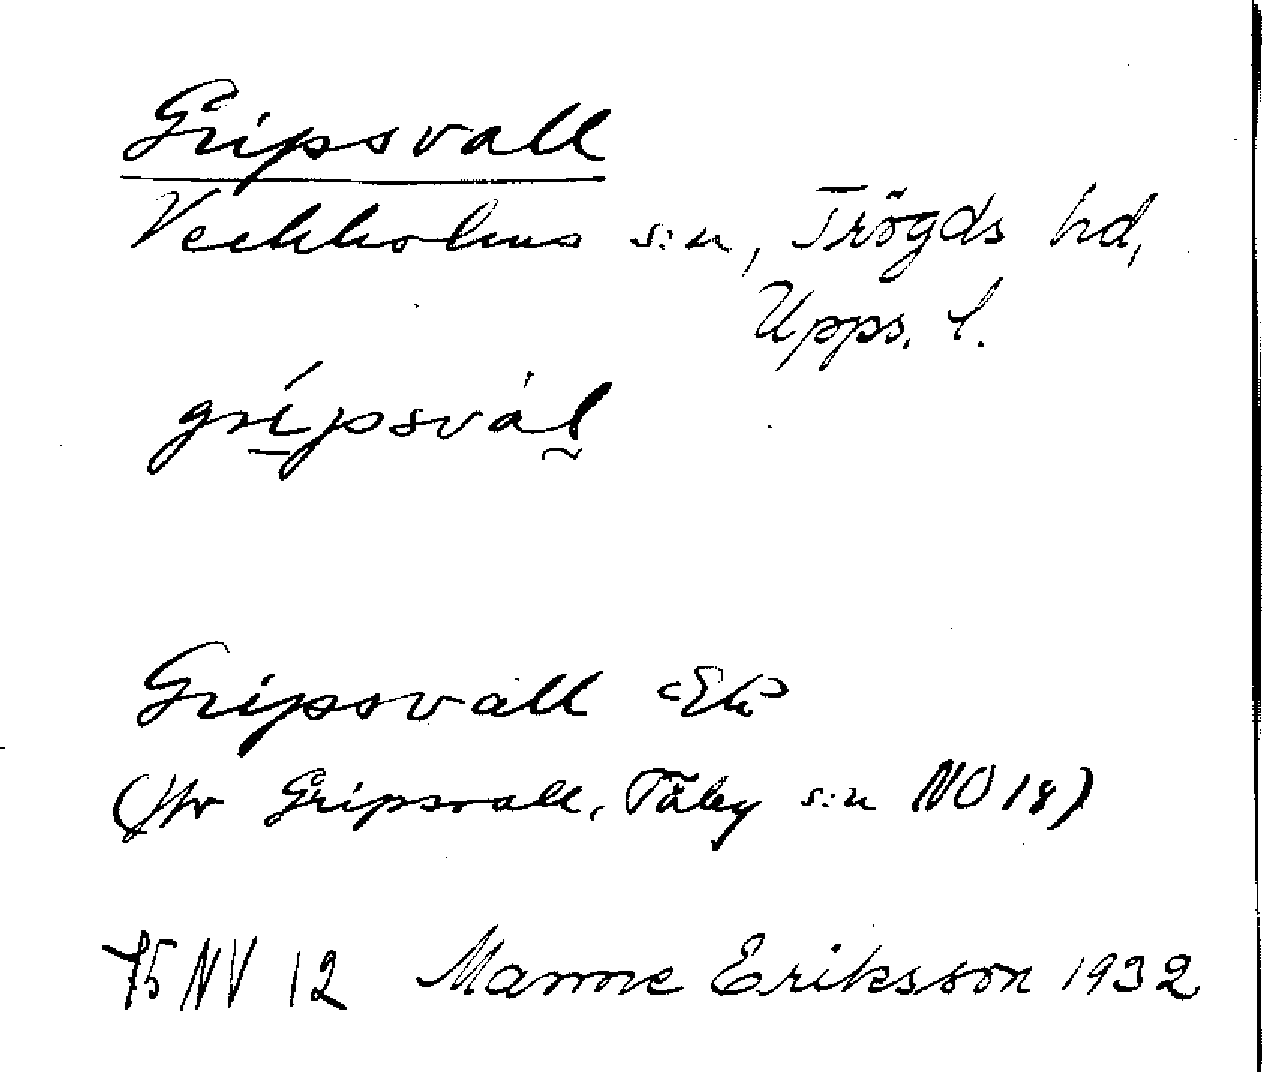 Gripsvall
Veckholms s:n, Trögds hd,
Upps. l.
grípsvál
Gripsvall Ek
(Jfr Gripsvall, Täby s:n NO 18)
75 NV 12 Manne Eriksson 1932